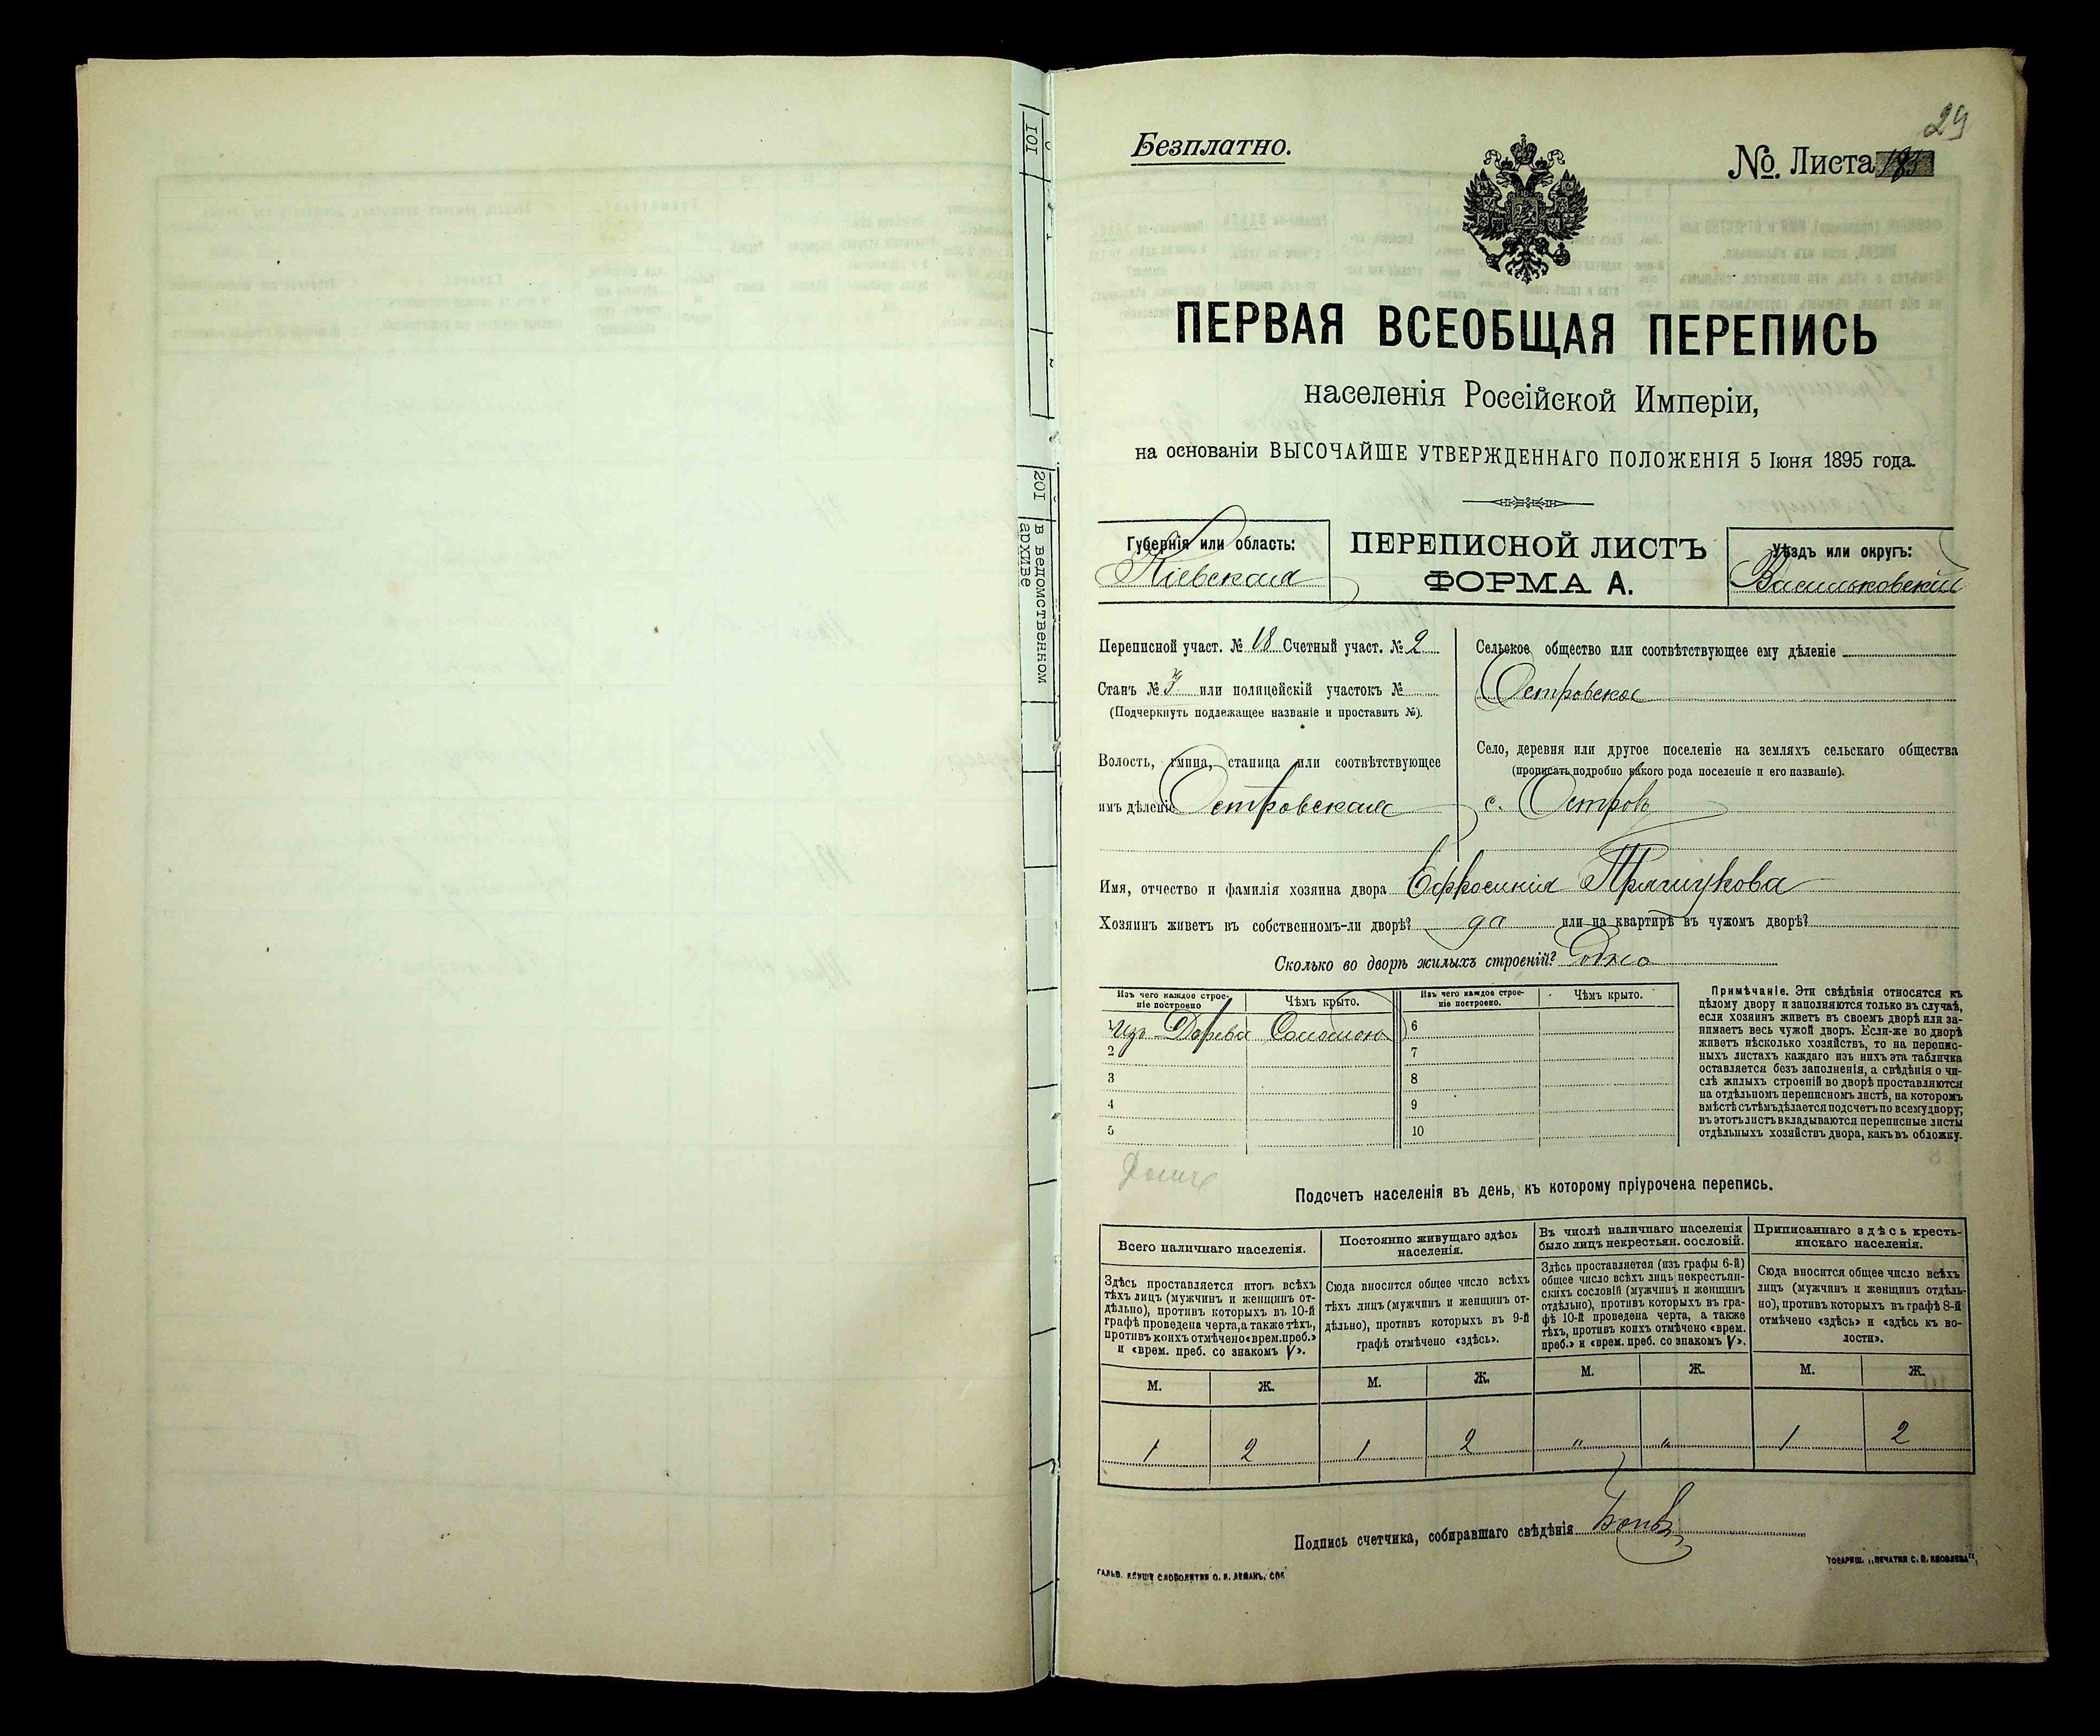 29
Безплатно.
№. Листа
ПЕРВАЯ ВСЕОБЩАЯ ПЕРЕПИСЬ
населенія Россійской Имперіи,
на основаніи ВЫСОЧАЙШЕ УТВЕРЖДЕННАГО ПОЛОЖЕНІЯ 5 Іюня 1895 года.
Губернія или область:
Кіевская
ПЕРЕПИСНОЙ ЛИСТЪ
ФОРМА А.
Уѣздъ или округъ:
Васильковскій
Переписной участ. № 18 Счетный участ. № 2
Станъ № или полицейскій участокъ №
(Подчеркнуть подлежащее названіе и проставить №).
Волость, гмина, станица или соотвѣтствующее
имъ дѣленіе Островская
Сельское общество или соотвѣтствующее ему дѣленіе
Островское
Село, деревня или другое поселеніе на земляхъ сельскаго общества
(прописать подробно какого рода поселеніе и его названіе).
с. Островъ
Имя, отчество и фамилія хозяина двора Ефросинія
Хозяинъ живетъ въ собственномъ-ли дворѣ? да или на квартирѣ въ чужомъ дворѣ?
Сколько во дворѣ жилыхъ строеній? Одно
Изъ чего каждое строе-
ніе построено
Чѣмъ крыто.
Изъ чего каждое строе-
ніе построено.
Чѣмъ крыто.
1 Изъ Дерева Соломою 6
2 7
3 8
4 9
5 10
Примѣчаніе. Эти свѣдѣнія относятся къ
цѣлому двору и заполняются только въ случаѣ,
если хозяинъ живетъ въ своемъ дворѣ или за-
нимаетъ весь чужой дворъ. Если-же во дворѣ
живетъ нѣсколько хозяйствъ, то на перепис-
ныхъ листахъ каждаго изъ нихъ эта табличка
оставляется безъ заполненія, а свѣдѣнія о чи-
слѣ жилыхъ строеній во дворѣ проставляются
на отдѣльномъ переписномъ листѣ, на которомъ
вмѣстѣ съ тѣмъ дѣлается подсчетъ по всему двору;
въ этотъ листъ вкладываются переписные листы
отдѣльныхъ хозяйствъ двора, какъ въ обложку.
Подсчетъ населенія въ день, къ которому пріурочена перепись.
Всего наличнаго населенія.
Здѣсь проставляется итогъ всѣхъ
тѣхъ лицъ (мужчинъ и женщинъ от-
дѣльно), противъ которыхъ въ 10-й
графѣ проведена черта, а также тѣхъ,
противъ коихъ отмѣчено «врем. преб.»
и «врем. преб. со знакомъ V».
Постоянно живущаго здѣсь
населенія.
Сюда вносится общее число всѣхъ
тѣхъ лицъ (мужчинъ и женщинъ от-
дѣльно), противъ которыхъ въ 9-й
графѣ отмѣчено «здѣсь».
Въ числѣ наличнаго населенія
было лицъ некрестьян. сословій.
Здѣсь проставляется (изъ графы 6-й)
общее число всѣхъ лицъ некрестьян-
скихъ сословій (мужчинъ и женщинъ
отдѣльно), противъ которыхъ въ гра-
фѣ 10-й проведена черта, а также
тѣхъ, противъ коихъ отмѣчено «врем.
преб.» и «врем. преб. со знакомъ V».
Приписаннаго здѣсь кресть-
янскаго населенія.
Сюда вносится общее число всѣхъ
лицъ (мужчинъ и женщинъ отдѣль-
но), противъ которыхъ въ графѣ 8-й
отмѣчено «здѣсь» и «здѣсь къ во-
лости».
М. Ж. М. Ж. М. Ж. М. Ж.
1 2 1 2 " " 1 2
Подпись счетчика, собиравшаго свѣдѣнія
101
201
в ведомственном
архиве